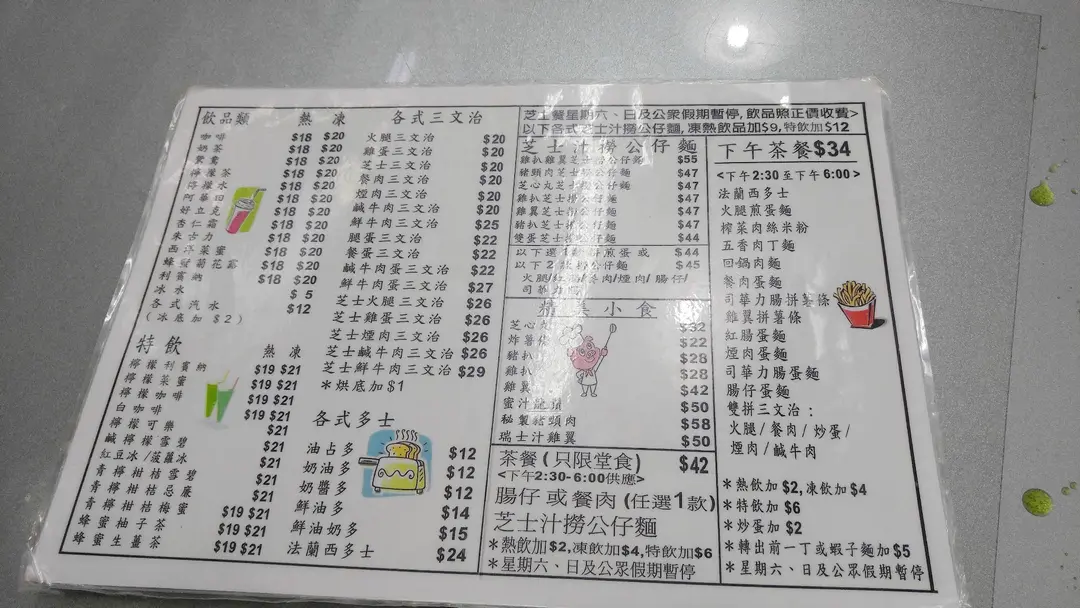 飲品類 熱 凍
咖啡 $18 $20
奶茶 $18 $20
鴛鴦 $18 $20
檸檬茶 $18 $20
檸檬水 $18 $20
阿華田 $18 $20
好立克 $18 $20
杏仁霜 $18 $20
朱古力 $18 $20
西洋菜蜜 $18 $20
蜂蜜菊花 $18 $20
利賓納 $18 $20
冰水 $ 5
各式汽水 $12
(冰底加 $2)
特飲 熱 凍
檸檬利賓納 $19 $21
檸檬菜蜜 $19 $21
檸檬咖啡 $19 $21
白咖啡 $19 $21
檸檬可樂 $21
鹹檸檬雪碧 $21
紅豆冰/菠蘿冰 $21
青檸柑桔雪碧 $21
青檸柑桔忌廉 $21
青檸柑桔梅蜜 $19 $21
蜂蜜柚子茶 $19 $21
蜂蜜生薑茶 $19 $21
各式三文治
火腿三文治 $20
雞蛋三文治 $20
芝士三文治 $20
餐肉三文治 $20
煙肉三文治 $20
鹹牛肉三文治 $20
鮮牛肉三文治 $25
腿蛋三文治 $22
餐蛋三文治 $22
鹹牛肉蛋三文治 $22
鮮牛肉蛋三文治 $27
芝士火腿三文治 $26
芝士雞蛋三文治 $26
芝士煙肉三文治 $26
芝士鹹牛肉三文治 $26
芝士鮮牛肉三文治 $29
*烘底加$1
各式多士
油占多 $12
奶油多 $12
奶醬多 $12
鮮油多 $14
鮮油奶多 $15
法蘭西多士 $24
芝士餐星期六、日及公眾假期暫停,飲品照正價收費>
以下各式芝士汁撈公仔麵,凍熱飲品加$9,特飲加$12
芝士汁撈公仔麵
雞扒雞翼芝士撈公仔麵 $55
豬頸肉芝士撈公仔麵 $47
芝心丸芝士撈公仔麵 $47
雞扒芝士撈公仔麵 $47
雞翼芝士撈公仔麵 $47
豬扒芝士撈公仔麵 $47
雙蛋芝士撈公仔麵 $44
以下選 煎蛋或 $44
以下2 撈公仔麵 $45
火腿/ 餐肉/煙肉/腸仔/
司華力
精 小食
芝心丸 $32
炸薯 $22
豬扒 $28
雞扒 $28
雞翼 $42
蜜汁 $50
秘製豬頸肉 $58
瑞士汁雞翼 $50
茶餐(只限堂食) $42
<下午2:30-6:00供應>
腸仔或餐肉(任選1款)
芝士汁撈公仔麵
*熱飲加$2,凍飲加$4,特飲加$6
*星期六、日及公眾假期暫停
下午茶餐$34
<下午2:30至下午6:00>
法蘭西多士
火腿煎蛋麵
榨菜肉絲米粉
五香肉丁麵
回鍋肉麵
餐肉蛋麵
司華力腸拼薯條
雞翼拼薯條
紅腸蛋麵
煙肉蛋麵
司華力腸蛋麵
腸仔蛋麵
雙拼三文治:
火腿/餐肉/炒蛋/
煙肉/鹹牛肉
*熱飲加$2,凍飲加$4
*特飲加$6
*炒蛋加$2
*轉出前一丁或蝦子麵加$5
*星期六、日及公眾假期暫停